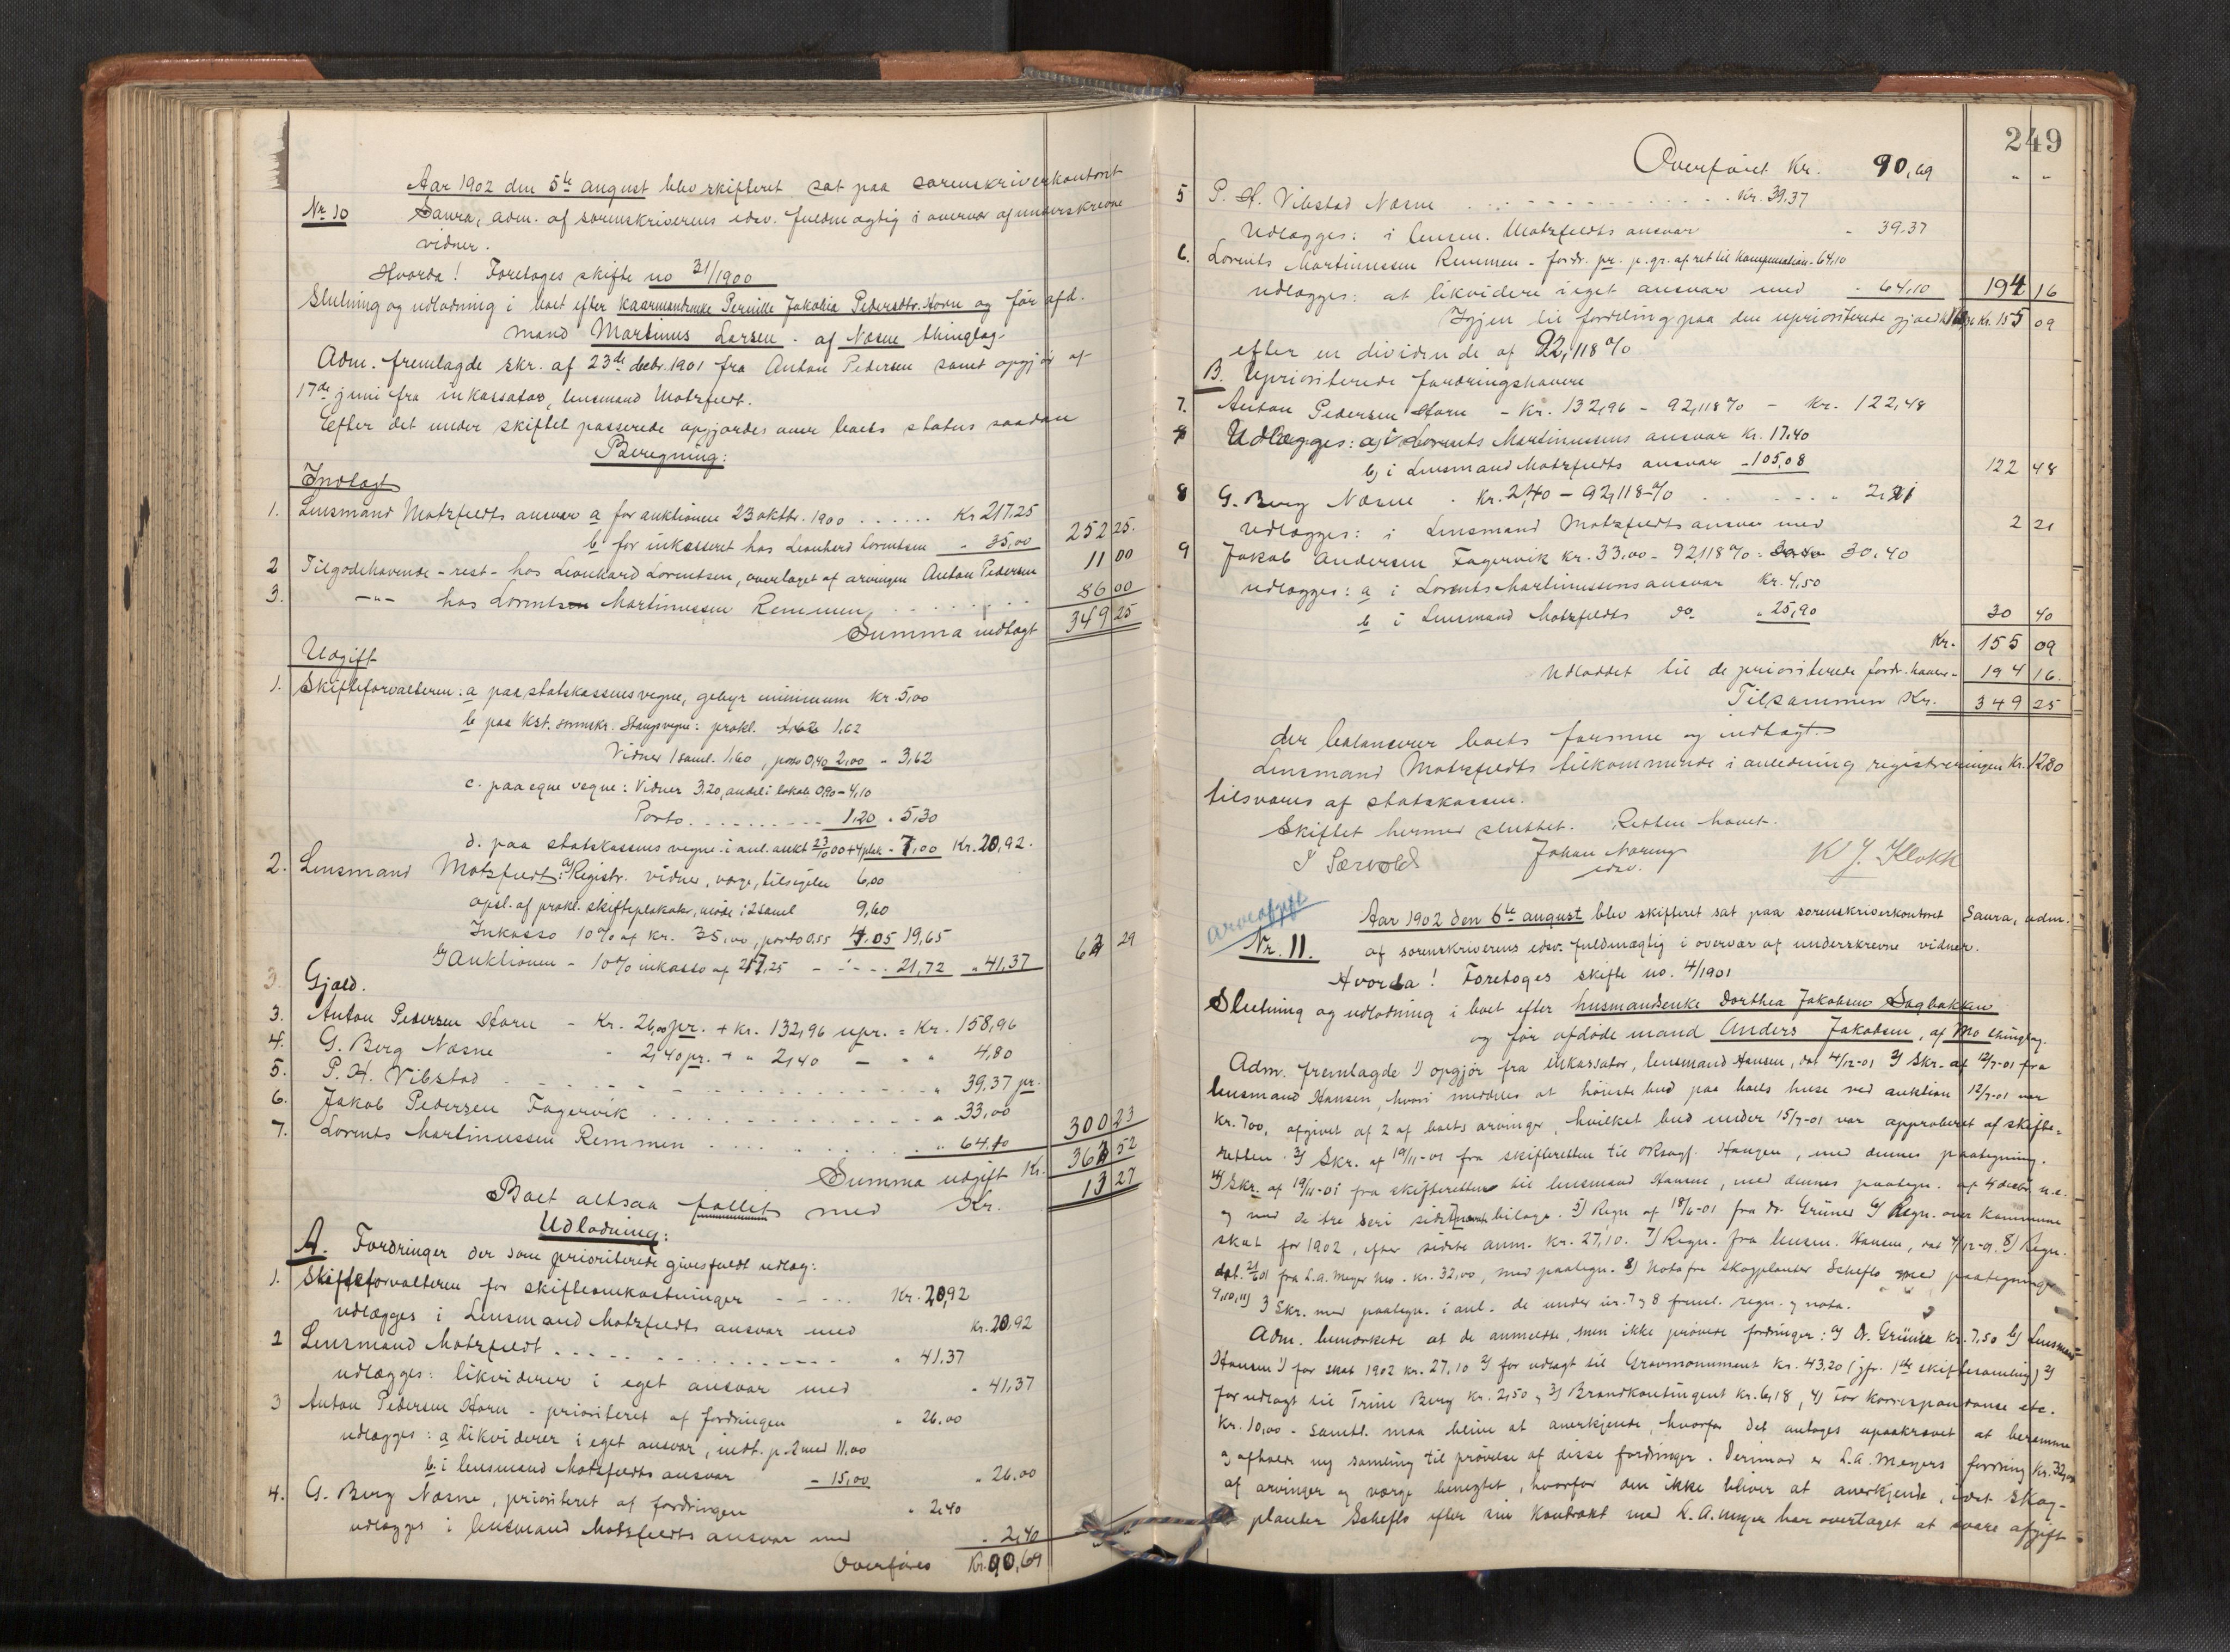 Aar 1902 den 5te august blev skifteret sat paa sorenskriverkontoret
Nr. 10 Saura, adm. af sorenskriverens edsv. fuldmægtig i overvær af underskrevne
vidner.
Hvorda! Foretoges skifte no 31/1900
Slutning og udlodning i boet efter kaarmandenke Pernille Jakobia Pedersdtr. Horn og før afd.
mand Martinus Larsen - af Næsne thinglag.
Adm. fremlagde skr. af 23de decbr. 1901 fra Anton Pedersen samt opgjør af
17de juni fra inkassator, lensmand Motzfeldt.
Efter det under skiftet passerede opgjordes over boets status saadan
Beregning:
Indtægt
1. Lensmand Motzfeldts ansvar a for auktionen 23 oktbr. 1900 ...... Kr 217,25
b for inkasseret hos Leonhard Lorentsen " 35,00 252 25.
2 Tilgodehavende - rest - hos Leonhard Lorentsen, overtaget af arvingen Anton Pedersen 11 00
3. -"- hos Lorents Martinussen Remmen ........ 86 00
Summa indtægt 349 25
Udgift
1. Skifteforvalteren: a paa statskassens vegne, gebyr minimum Kr. 5,00
b paa kst. sorenskr. Stangs vegne: prokl. 1,62
Vidner 1 saml. 1,60, porto 0,40 2,00 - 3,62
c. paa egne vegne: Vidner 3,20, andel i lokale 0,90 - 4,10
Porto.......... 1,20 " 5,30
d. paa statskassens vegne i anl. aukt 23/10 00 + 4 plak. - 7,00 Kr. 20,92.
2. Lensmand Motzfeldt: a/ Registr. vidner, varge, tilsigelse 6,00
opsl. af prokl. skifteplakater, møde i 2 saml 9,60
Inkasso 10% af kr. 35,00, porto 0,55 4,05 19,65
b/ Auktionen - 10% inkasso af 217,25 - - - - 21,72 " 41,37 62 29
3. Gjæld.
3. Anton Pedersen Horn - Kr. 26,00 pr. + kr. 132,96 upr. = Kr. 158,96
4. G. Berg Næsne " 2,40 pr. + " 2,40 - " " 4,80
5. P. H. Vibstad ............ " 39,37 pr.
6. Jakob Pedersen Fagervik .......... " 33,00
7. Lorents Martinussen Remmen .......... " 64,10 300 23
Summa udgift Kr. 362 52
Boet altsaa fallit med Kr. 13 27
Udlodning:
A. Fordringer der som prioriterede gives fuldt udlæg:
1. Skifteforvalteren for skifteomkostninger - - ... Kr. 20,92
udlægges i Lensmand Motzfeldts ansvar med Kr. 20,92
2 Lensmand Motzfeldt .............. " 41,37
udlægges: likviderer i eget ansvar med " 41,37
3 Anton Pedersen Horn - prioriteret af fordringen " 26,00
udlægges: a likviderer i eget ansvar, indt. p. 2 med 11,00
b. i lensmand Motzfeldts ansvar - 15,00 " 26.00
4. G. Berg Næsne, prioriteret af fordringen " 2,40
udlægges i lensmand Motzfeldts ansvar med " 2,40
Overføres Kr. 90,69
249
Overføret Kr. 90,69 " "
5 P. H. Vibstad Næsne ............. Kr. 39,37
Udlægges: i lensm. Motzfeldts ansvar - 39,37
6. Lorents Martinussen Remmen - fordr. pr. p. gr. af ret til kompensation - 64,10
udlægges: at likvidere i eget ansvar med - 64,10 194 16
Igjen til fordeling paa den uprioriterede gjæld Kr. 155 09
efter en dividende af 92,118 %
B. Uprioriterede fordringshavere
7. Anton Pedersen Horn - Kr. 132,96 - 92,118 % - Kr. 122,48
Udlægges: a) i Lorents Martinussens ansvar Kr. 17,40
b) i Lensmand Motzfeldts ansvar - 105,08 122 48
8 G. Berg Næsne . Kr. 2,40 - 92,118 % ....... " 2,21
Udlægges: i Lensmand Motzfeldts ansvar med 2 21
9 Jakob Andersen Fagervik kr. 33,00 - 92,118 % = 30,40
udlægges: a i Lorents Martinussens ansvar Kr. 4,50
b i Lensmand Motzfeldts do " 25,90 30 40
Kr. 155 09
Udloddet til de prioriterede fordr. havere " 194 16.
Tilsammen Kr. 349 25
der balancerer boets formue og indtægt.
Lensmand Motzfeldts tilkommende i anledning registreringen Kr. 12,80
tilsvares af statskassen.
Skiftet hermed sluttet. Retten hævet.
J Særvold Johan Noring K J. Klokk
edsv.
arveafgift
Nr. 11. Aar 1902 den 6te august blev skifteret sat paa sorenskriverkontoret Saura, adm.
af sorenskriverens edsv. fuldmægtig i overvær af underskrevne vidner.
Hvorda! Foretoges skifte no. 4/1901
Slutning og udlodning i boet efter husmandsenke Dorthea Jakobsen Sagbakken
og før afdøde mand Anders Jakobsen, af Mo thinglag.
Adm. fremlagde 1) opgjør fra inkassator, lensmand Hansen, dat 4/12-01 2) Skr. af 12/7-01 fra
lensmand Hansen, hvori meddeles at høieste bud paa boets huse ved auktion 12/7-01 var
kr. 700, afgivet af 2 af boets arvinger, hvilket bud under 15/7-01 var approberet af skifte-
retten. 3) Skr. af 19/11-01 fra skifteretten til oRsagf. Haugen, med dennes paategning.
4) Skr. af 19/11-01 fra skifteretten til lensmand Hansen, med dennes paategn. af 4 decbr n.e.
og med de tre deri sidstnævnte bilage. 5) Regn af 18/6-01 fra dr. Grüner 6) Regn. over kommune
skat for 1902, efter sidste anm. kr. 27,10. 7) Regn. fra lensm. Hansen, dat 4/12-01. 8) Regn.
dat. 21/6 01 fra L.A. Meyer Mo. kr. 32,00, med paategn. 8) Nota fra skogplanter Scheflo med paategninger
9,10,11) 3 Skr. med paategn. i anl. de under nr. 7 og 8 freml. regn. og nota.
Adm. bemærkede at de anmeldte, men ikke prøvede fordringer: a) Dr. Grüner kr. 7,50 b) Lensmand
Hansen 1) for skat 1902 kr. 27,10 2) for udlagt til Gravmonument kr. 43,20 (jfr. 1ste skiftesamling) 2)
for udlagt til Trine Berg kr. 2,50, 3) Brandkontingent kr. 6,18, 4) For korrespondanse etc.
kr. 10,00 - samtl. maa blive at anerkjende, hvorfor det antages upaakrævet at berømme
og afholde ny samling til prøvelse af disse fordringer. Derimod er L.A. Meyers fordring kr. 32,00
af arvinger og værge benegtet, hvorfor den ikke bliver at anerkjende, idet skog-
planter Scheflo efter sin kontrakt med L.A. Meyer har overtaget at svare afgift